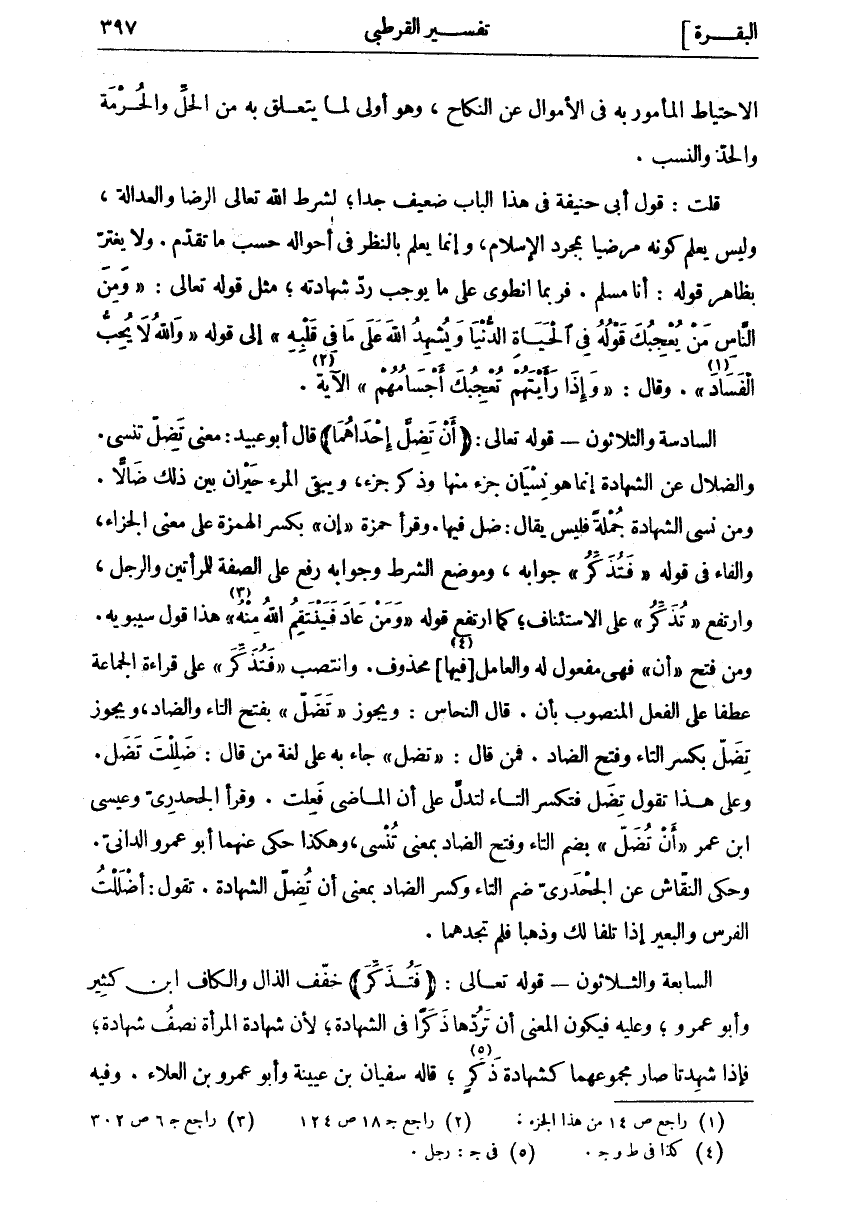 البقرة] تفسير القرطبى ٣٩٧
الاحتياط المأمور به فى الأموال عن النكاح ، وهو أولى لما يتعلق به من الحِلّ والحُرْمَة
والحدّ والنسب .
قلت : قول أبى حنيفة فى هذا الباب ضعيف جدا؛ لشرط الله تعالى الرضا والعدالة ،
وليس يعلم كونه مرضيا بمجرد الإسلام، وإنما يعلم بالنظر فى أحواله حسب ما تقدّم . ولا يغترّ
بظاهر قوله : أنا مسلم . فربما انطوى على ما يوجب ردّ شهادته ؛ مثل قوله تعالى : « وَمِنَ
النَّاسِ مَنْ يُعْجِبُكَ قَوْلُهُ فِى ٱلْحَيَاةِ الدُّنْيَا وَيُشْهِدُ اللهَ عَلَى مَا فِى قَلْبِهِ » إلى قوله « وَاللهُ لَا يُحِبُّ
الْفَسَادَ (١) » . وقال : « وَإِذَا رَأَيْتَهُمْ تُعْجِبُكَ أَجْسَامُهُمْ (٢) » الآية .
السادسة والثلاثون — قوله تعالى: ﴿ أَنْ تَضِلَّ إِحْدَاهُمَا ﴾ قال أبو عبيد: معنى تَضِلّ تنسى.
والضلال عن الشهادة إنما هو نِسْيَان جزء منها وذكر جزء، ويبقى المرء حَيْران بين ذلك ضَالًّا .
ومن نسى الشهادة جُمْلةً فليس يقال: ضل فيها. وقرأ حمزة «إن» بكسر الهمزة على معنى الجزاء،
والفاء فى قوله « فَتُذَكِّرُ » جوابه ، وموضع الشرط وجوابه رفع على الصفة للمرأتين والرجل ،
وارتفع « تُذَكِّرُ » على الاستئناف؛ كما ارتفع قوله «وَمَنْ عَادَ فَيَنْتَقِمُ اللهُ مِنْهُ (٣)» هذا قول سيبويه.
ومن فتح «أن» فهى مفعول له والعامل [فيها] (٤) محذوف. وانتصب «فَتُذَكِّرَ » على قراءة الجماعة
عطفا على الفعل المنصوب بأن . قال النحاس : ويجوز « تَضَلّ » بفتح التاء والضاد، ويجوز
تِضَلّ بكسر التاء وفتح الضاد . فمن قال : «تضل» جاء به على لغة من قال : ضَلِلْتَ تَضَل.
وعلى هذا تقول تِضَل فتكسر التاء لتدلّ على أن الماضى فَعِلت . وقرأ الجحدرىّ وعيسى
ابن عمر «أَنْ تُضَلّ » بضم التاء وفتح الضاد بمعنى تُنْسى، وهكذا حكى عنهما أبو عمرو الدانىّ.
وحكى النقّاش عن الجَحْدَرىّ ضم التاء وكسر الضاد بمعنى أن تُضِلّ الشهادة . تقول: أضْلَلْتُ
الفرس والبعير إذا تلفا لك وذهبا فلم تجدهما .
السابعة والثلاثون — قوله تعالى : ﴿ فَتُذَكِّرَ ﴾ خفّف الذال والكاف ابن كثير
وأبو عمرو ؛ وعليه فيكون المعنى أن تَرُدّها ذَكَرًا فى الشهادة؛ لأن شهادة المرأة نصفُ شهادة؛
فإذا شهدتا صار مجموعهما كشهادة ذَكَرٍ (٥) ؛ قاله سفيان بن عيينة وأبو عمرو بن العلاء . وفيه
(١) راجع ص ١٤ من هذا الجزء . (٢) راجع جـ ١٨ ص ١٢٤ (٣) راجع جـ ٦ ص ٣٠٢
(٤) كذا فى ط و جـ . (٥) فى جـ : رجل .